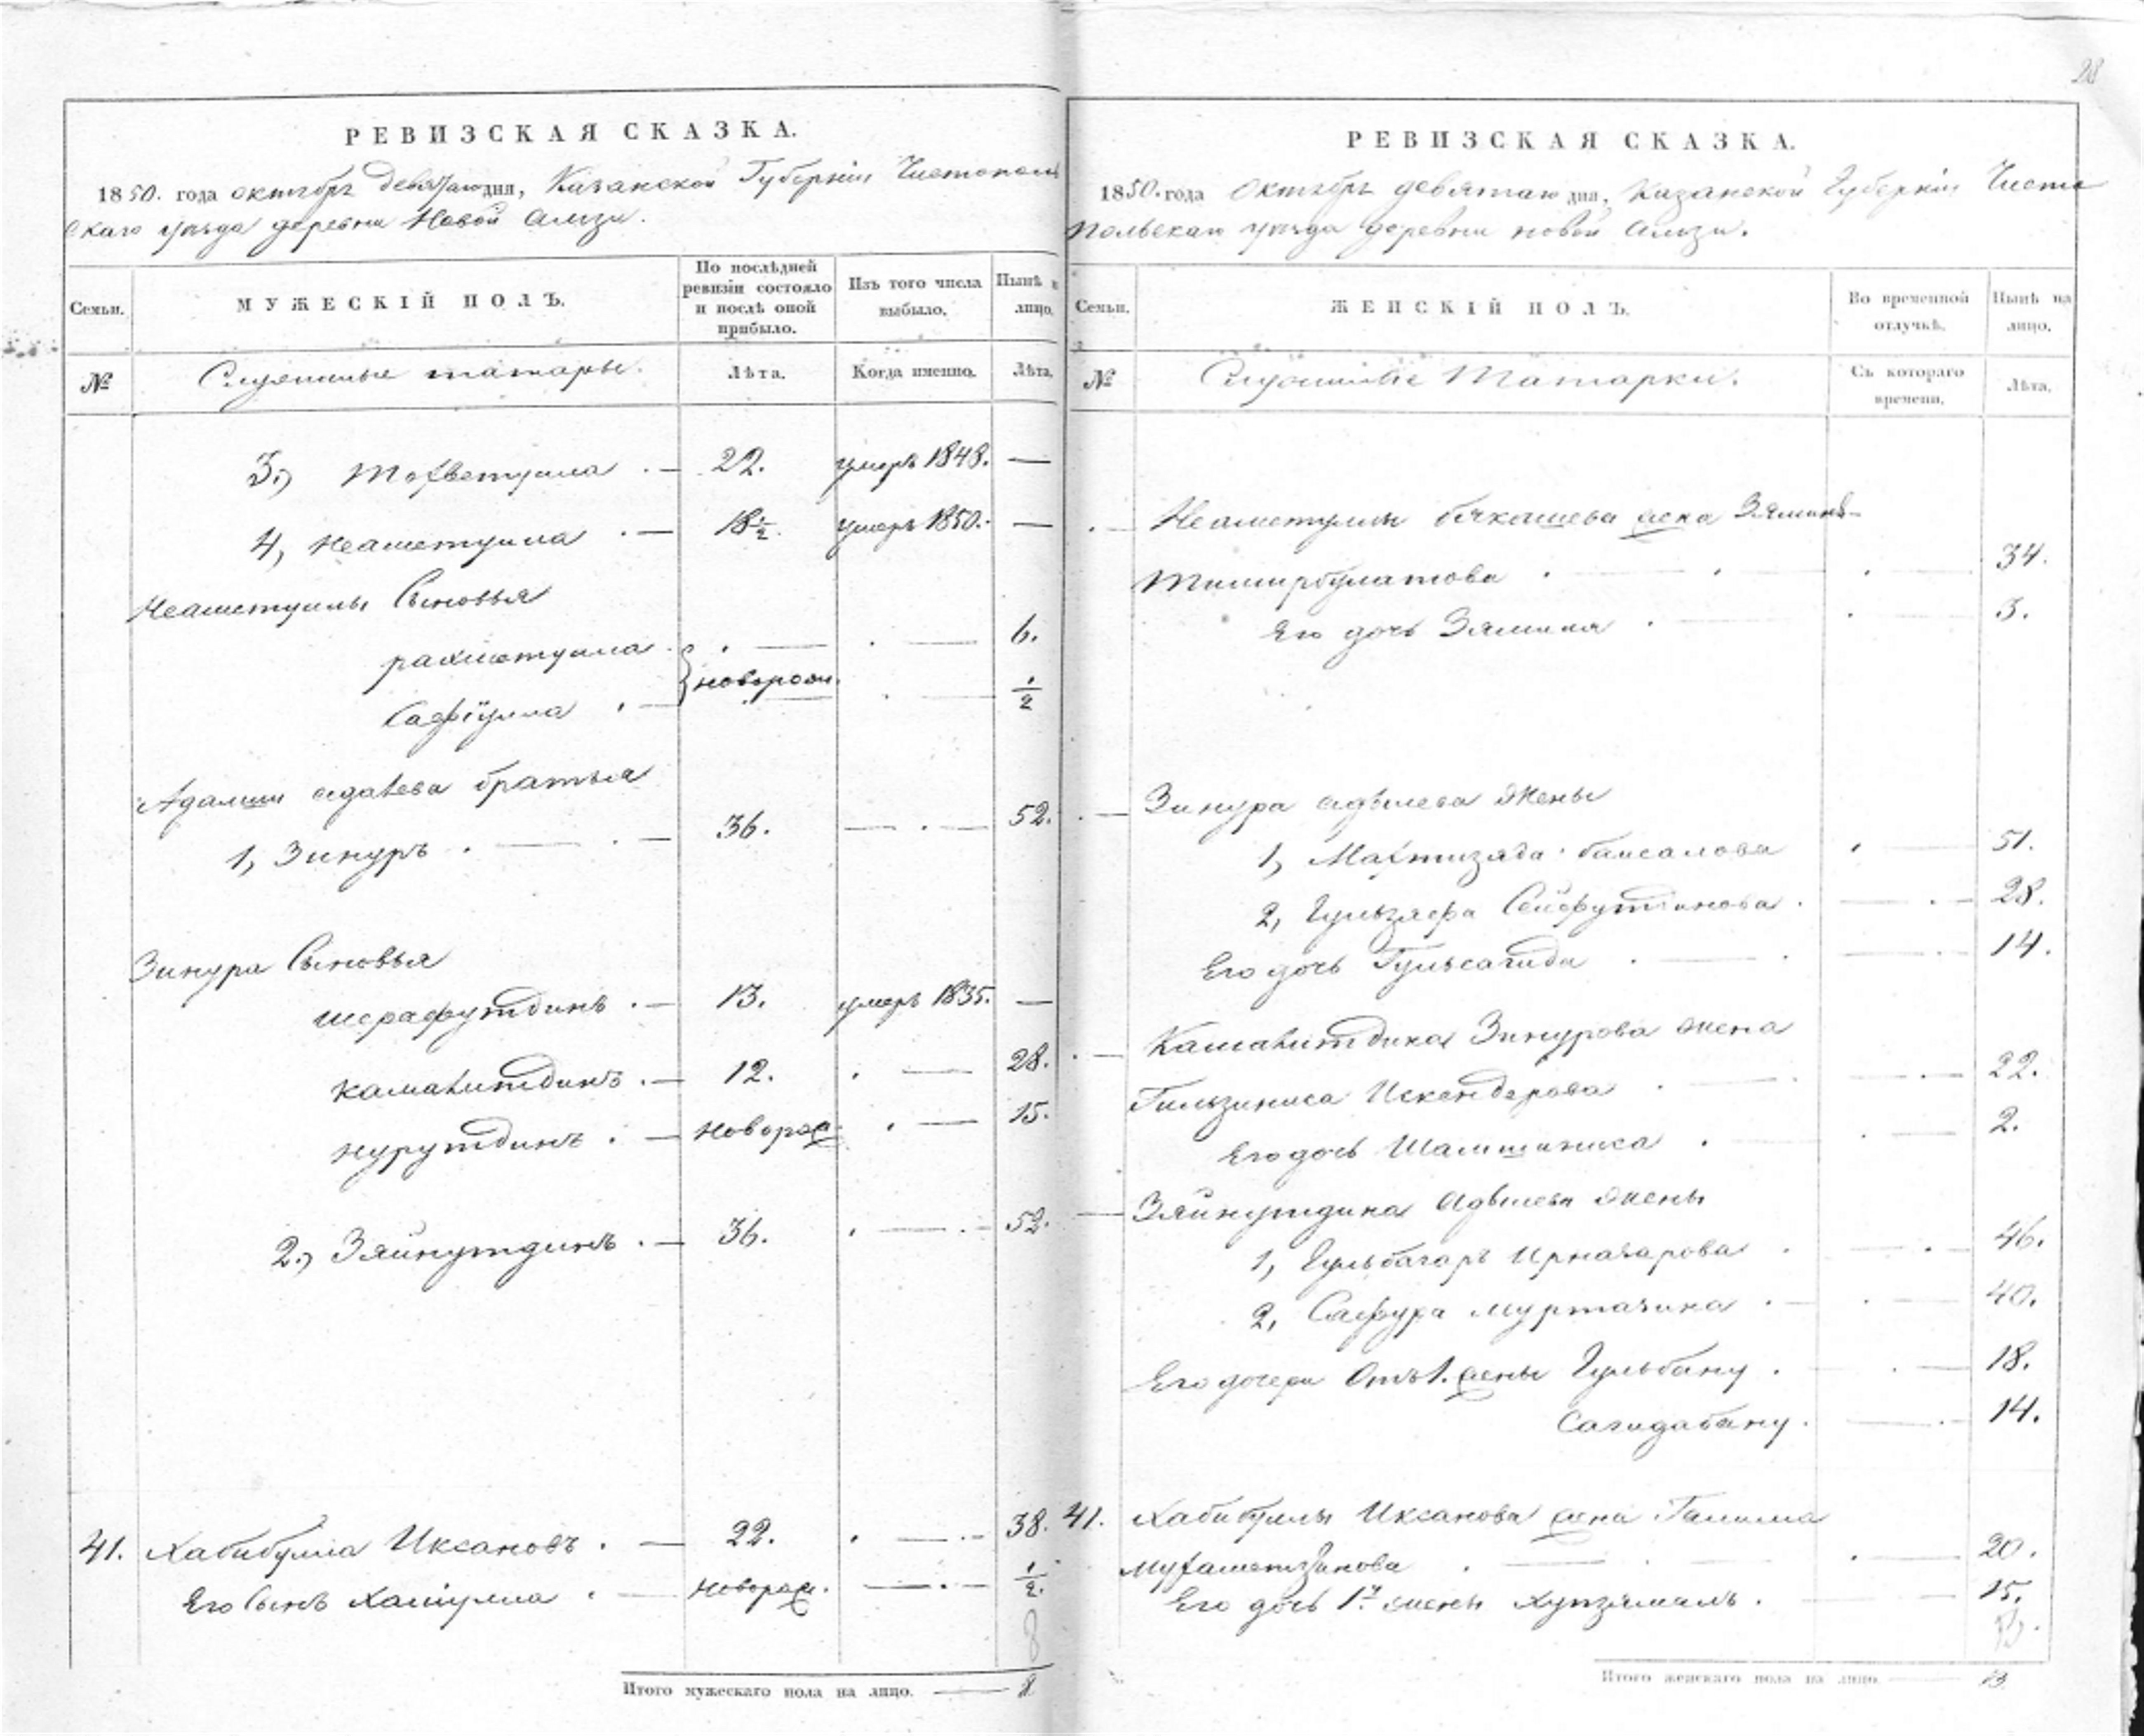 28
РЕВИЗСКАЯ СКАЗКА.
1850. года октябрь девятаго дня, Казанской Губернiи Чистополь
скаго уѣзда деревни Новой Амзи.
Семьи.
МУЖЕСКIЙ ПОЛЪ.
По послѣдней ревизiи состояло и послѣ оной прибыло.
Изъ того числа выбыло.
Нынѣ лицо.
№
Служилые татары.
Лѣта.
Когда именно.
Лѣта.
3.) Тохветулла . — 22. умеръ 1848. —
4, Неаметулла . — 18 1/2. умеръ 1850. —
Неаметуллы Сыновья
рахметулла . — . — 6.
новорож.
Сафiулла . — . — 1/2
братья
1, Зинуръ . — . — 36. — . — 52.
Зинура Сыновья
шерафутдинъ . — 13. умеръ 1835. —
камалитдинъ . — 12. . — 28.
нурутдинъ . — новорож . — 15.
2.) Зяйнутдинъ . — 36. . — . — 52.
41. Хабибулла Иксановъ . — 22. . — . — 38.
Его Сынъ . — новорож. — . — 1/2.
8
Итого мужескаго пола на лицо. — 8
РЕВИЗСКАЯ СКАЗКА.
1850. года Октябрь девятаго дня, Казанской Губернiи Чисто
польскаго уѣзда деревни новой Амзи.
Семьи.
ЖЕНСКIЙ ПОЛЪ.
Во временной отлучкѣ.
Нынѣ на лицо.
№
Служилые Татарки.
Съ котораго времени.
Лѣта.
. — Неаметуллы жена
Тимирбулатова . — . — . — 34.
Его дочь Зямиля . — . — 3.
. — Зинура жены
1, . — 51.
2, Гульзяфа Сейфутдинова . — . — 28.
Его дочь Гульсагида . — . — 14.
. — Камалитдина Зинурова жена
Гильзиниса Искендерова . — — . — 22.
Его дочь Шамшиниса . — . — 2.
— Зяйнутдина жены
1, Гульбагаръ Ирназарова . — . — 46.
2, Сафура муртазина . — . — 40.
Его дочери Отъ 1. жены Гульбану . — . — 18.
Сагидабану . — . — 14.
41. Хабибуллы Иксанова жена Галима
Мухаметзянова . — — . — 20.
Его дочь 1й жены хупзямалъ . — — 15.
13.
Итого женскаго пола на лицо — 13